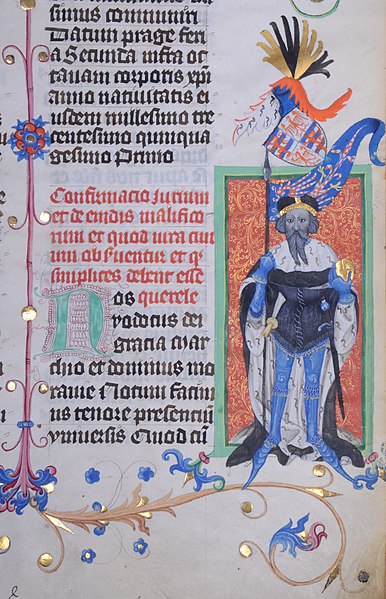 simus communiri
Datum prage feri
a Secunda infra oc
tauam corporis xpi
anno natiuitatis ei
usdem millesimo tre
centesimo quinqua
gesimo Primo
Confirmacio iurium
et de euidis malifico
rum et quod iura ciui
um obseruentur et q
simplices debent esse
Nos querele
yodocus dei
gracia mar
chio et dominus mo
rauie Notum facim
us tenore presencium
vniuersis Quod cum